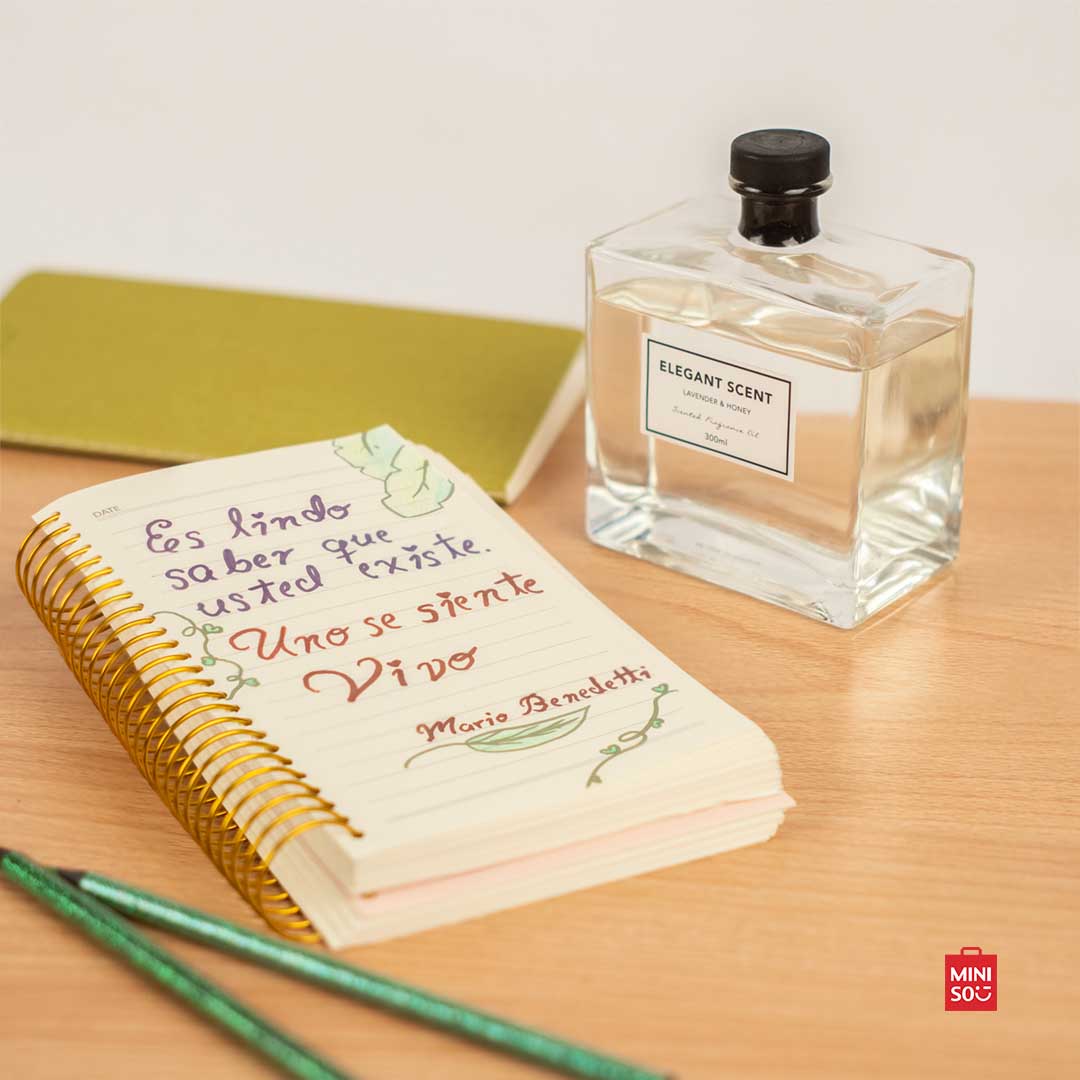 DATE
Es lindo
saber que
usted existe.
Uno se siente
Vivo
Mario Benedetti
ELEGANT SCENT
LAVENDER & HONEY
Scented Fragrance Oil
300ml
MINI
SO